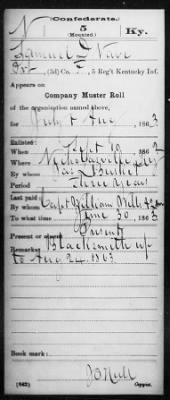 N Confederate. Ky.
5
(Mounted.)
Samuel D Nave
Pvt, (3d) Co. F, 5 Reg't Kentucky Inf.
Appears on
Company Muster Roll
of the organization named above,
for July & Aug, 1863
Enlisted:
When Sept 10, 1862
Where Nicholasville Ky
By whom
Period Three years
Last paid:
By whom Capt William
To what time June 30, 1863
Present or absent Present
Remarks: Blacksmith up
to Aug 24. 1863.
Book mark:
(642) Copyist.